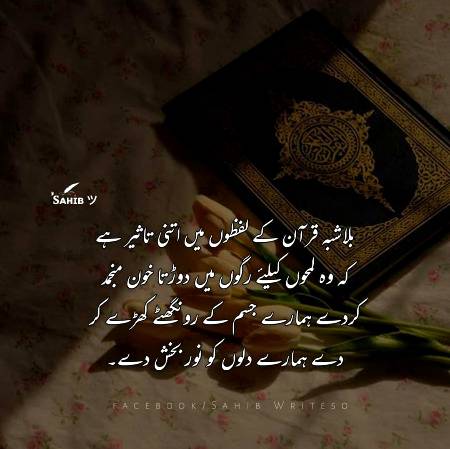 Sahib ツ
بلاشبہ قرآن کے لفظوں میں اتنی تاثیر ہے
کہ وہ لمحوں کیلیئے رگوں میں دوڑتا خون منجمد
کردے ہمارے جسم کے رونگھٹے کھڑے کر
دے ہمارے دلوں کو نور بخش دے۔
FACEBOOK/SAHIB WRITESO